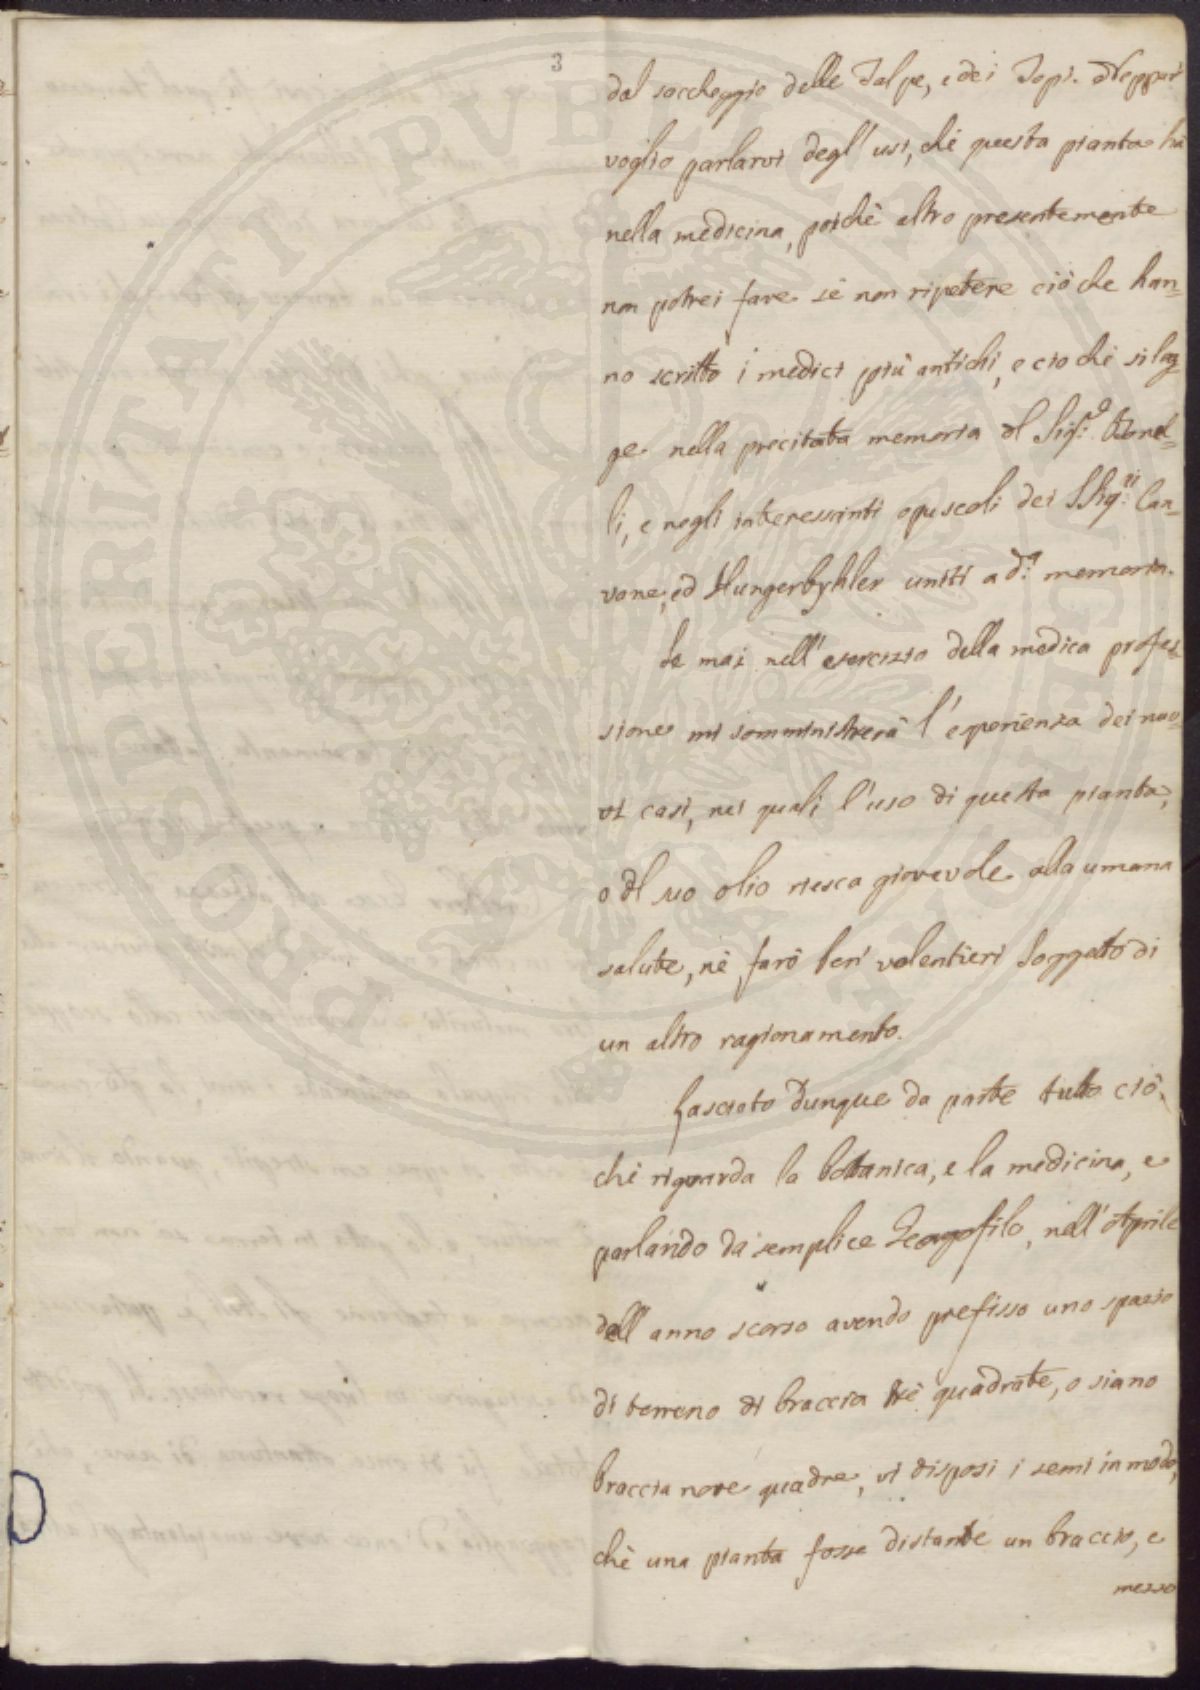 3
dal saccheggio delle Talpe, e dei Topi. Neppur
voglio parlarvi degl' usi, chè questa pianta hà
nella medicina, poichè altro presentemente
non potrei fare sè non ripetere ciò che han=
no scritto i medici più antichi, e cio chè si leg=
ge nella precitata memoria dl Sig.e
li, e negli interessanti opuscoli dei SSig.ri Can=
vane, ed Hungerbyhler uniti a d.a memoria.
Se mai nell' esercizio della medica profes=
sione mi somministrerà l' esperienza dei nuo=
vi casi, nei quali l'uso di questa pianta,
o dl suo olio riesca giovevole alla umana
salute, nè farò ben volentieri soggetto di
un altro ragionamento.
Lasciato dunque da parte tutto ciò,
chè riguarda la botanica, e la medicina, e
parlando da semplice Georgofilo, nell' Aprile
dell anno scorso avendo prefisso uno spazio
di terreno di braccia trè quadrate, o siano
braccia nove quadre, vi disposi i semi in modo,
chè una pianta fosse distante un braccio, e
mezzo
PROSPERITATI PUBLICAE AUGENDAE